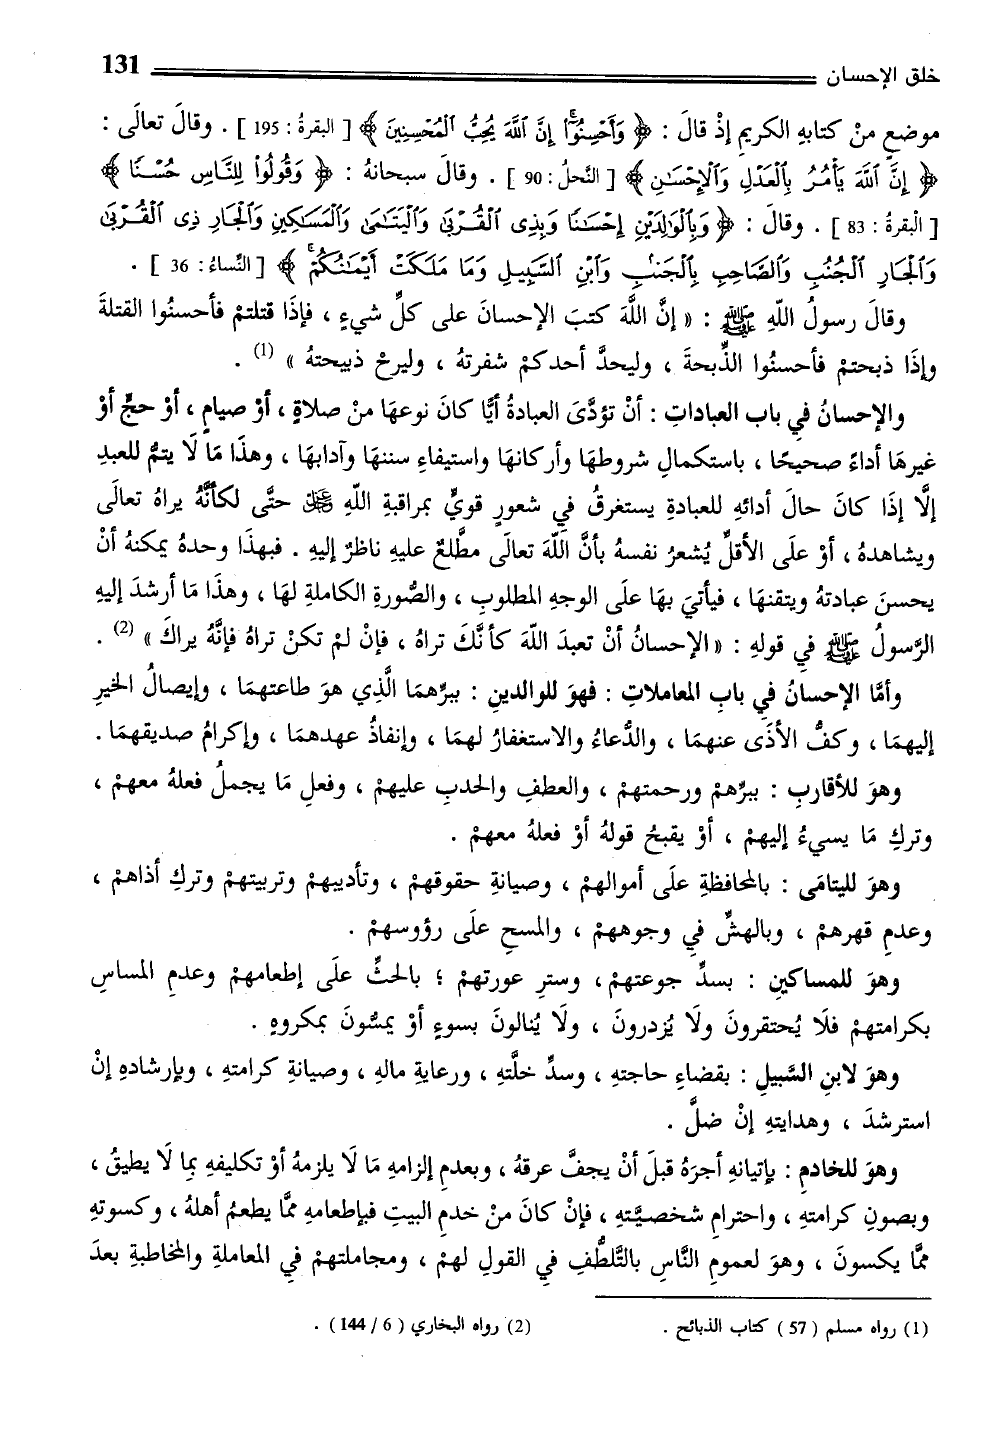 خلق الإحسان 131
موضعٍ منْ كتابهِ الكريمِ إذْ قالَ : ﴿ وَأَحْسِنُوٓا۟ۚ إِنَّ ٱللَّهَ يُحِبُّ ٱلْمُحْسِنِينَ ﴾ [ البقرةُ : 195 ] . وقالَ تعالَى :
﴿ إِنَّ ٱللَّهَ يَأْمُرُ بِٱلْعَدْلِ وَٱلْإِحْسَـٰنِ ﴾ [ النَّحلُ : 90 ] . وقالَ سبحانهُ : ﴿ وَقُولُوا۟ لِلنَّاسِ حُسْنًا ﴾
[ الْبقرةُ : 83 ] . وقالَ : ﴿ وَبِٱلْوَٰلِدَيْنِ إِحْسَـٰنًا وَبِذِى ٱلْقُرْبَىٰ وَٱلْيَتَـٰمَىٰ وَٱلْمَسَـٰكِينِ وَٱلْجَارِ ذِى ٱلْقُرْبَىٰ
وَٱلْجَارِ ٱلْجُنُبِ وَٱلصَّاحِبِ بِٱلْجَنۢبِ وَٱبْنِ ٱلسَّبِيلِ وَمَا مَلَكَتْ أَيْمَـٰنُكُمْۗ ﴾ [ النِّساءُ : 36 ] .
وقالَ رسولُ اللّهِ ﷺ : « إنَّ اللَّهَ كتبَ الإحسانَ على كلِّ شيءٍ ، فإذَا قتلتمْ فأحسنُوا القتلةَ
وإذَا ذبحتمْ فأحسنُوا الذِّبحةَ ، وليحدَّ أحدكمْ شفرتهُ ، وليرحْ ذبيحتهُ » (1) .
والإحسانُ في باب العباداتِ : أنْ تؤدَّىَ العبادةُ أيًّا كانَ نوعهَا منْ صلاةٍ ، أوْ صيامٍ ، أوْ حجٍّ أوْ
غيرهَا أداءً صحيحًا ، باستكمالِ شروطهَا وأركانهَا واستيفاءِ سننهَا وآدابهَا ، وهذَا مَا لَا يتمُّ للعبدِ
إلَّا إذَا كانَ حالَ أدائهِ للعبادةِ يستغرقُ في شعورٍ قويٍّ بمراقبةِ اللّهِ ﷻ حتَّى لكأنَّهُ يراهُ تعالَى
ويشاهدهُ ، أوْ علَى الأقلِّ يُشعرُ نفسهُ بأنَّ اللّهَ تعالَى مطَّلعٌ عليهِ ناظرٌ إليهِ . فبهذَا وحدهُ يمكنهُ أنْ
يحسنَ عبادتهُ ويتقنهَا ، فيأتيَ بهَا علَى الوجهِ المطلوبِ ، والصُّورةِ الكاملةِ لهَا ، وهذَا مَا أرشدَ إليهِ
الرَّسولُ ﷺ في قولهِ : « الإحسانُ أنْ تعبدَ اللّهَ كأنَّكَ تراهُ ، فإنْ لمْ تكنْ تراهُ فإنَّهُ يراكَ » (2) .
وأمَّا الإحسانُ في بابِ المعاملاتِ : فهوَ للوالدينِ : ببرِّهمَا الَّذِي هوَ طاعتهمَا ، وإيصالُ الخيرِ
إليهمَا ، وكفُّ الأذَى عنهمَا ، والدُّعاءُ والاستغفارُ لهمَا ، وإنفاذُ عهدهمَا ، وإكرامُ صديقهمَا .
وهوَ للأقاربِ : ببرِّهمْ ورحمتهمْ ، والعطفِ والحدبِ عليهمْ ، وفعلِ مَا يجملُ فعلهُ معهمْ ،
وتركِ مَا يسيءُ إليهمْ ، أوْ يقبحُ قولهُ أوْ فعلهُ معهمْ .
وهوَ لليتامَى : بالمحافظةِ علَى أموالهمْ ، وصيانةِ حقوقهمْ ، وتأديبهمْ وتربيتهمْ وتركِ أذاهمْ ،
وعدمِ قهرهمْ ، وبالهشِّ في وجوههمْ ، والمسحِ علَى رؤوسهمْ .
وهوَ للمساكينِ : بسدِّ جوعتهمْ ، وسترِ عورتهمْ ؛ بالحثِّ علَى إطعامهمْ وعدمِ المساسِ
بكرامتهمْ فلَا يُحتقرونَ ولَا يُزدرونَ ، ولَا يُنالونَ بسوءٍ أوْ يمسُّونَ بمكروهٍ .
وهوَ لابنِ السَّبيلِ : بقضاءِ حاجتهِ ، وسدِّ خلَّتهِ ، ورعايةِ مالهِ ، وصيانةِ كرامتهِ ، وبإرشادهِ إنْ
استرشدَ ، وهدايتهِ إنْ ضلَّ .
وهوَ للخادمِ : بإتيانهِ أجرَهُ قبلَ أنْ يجفَّ عرقهُ ، وبعدمِ إلزامهِ مَا لَا يلزمهُ أوْ تكليفهِ بمَا لَا يطيقُ ،
وبصونِ كرامتهِ ، واحترامِ شخصيَّتهِ ، فإنْ كانَ منْ خدمِ البيتِ فبإطعامهِ ممَّا يطعمُ أهلهُ ، وكسوتهِ
ممَّا يكسونَ ، وهوَ لعمومِ النَّاسِ بالتَّلطُّفِ في القولِ لهمْ ، ومجاملتهمْ في المعاملةِ والمخاطبةِ بعدَ
(1) رواه مسلم ( 57 ) كتاب الذبائح . (2) رواه البخاري ( 6 / 144 ) .